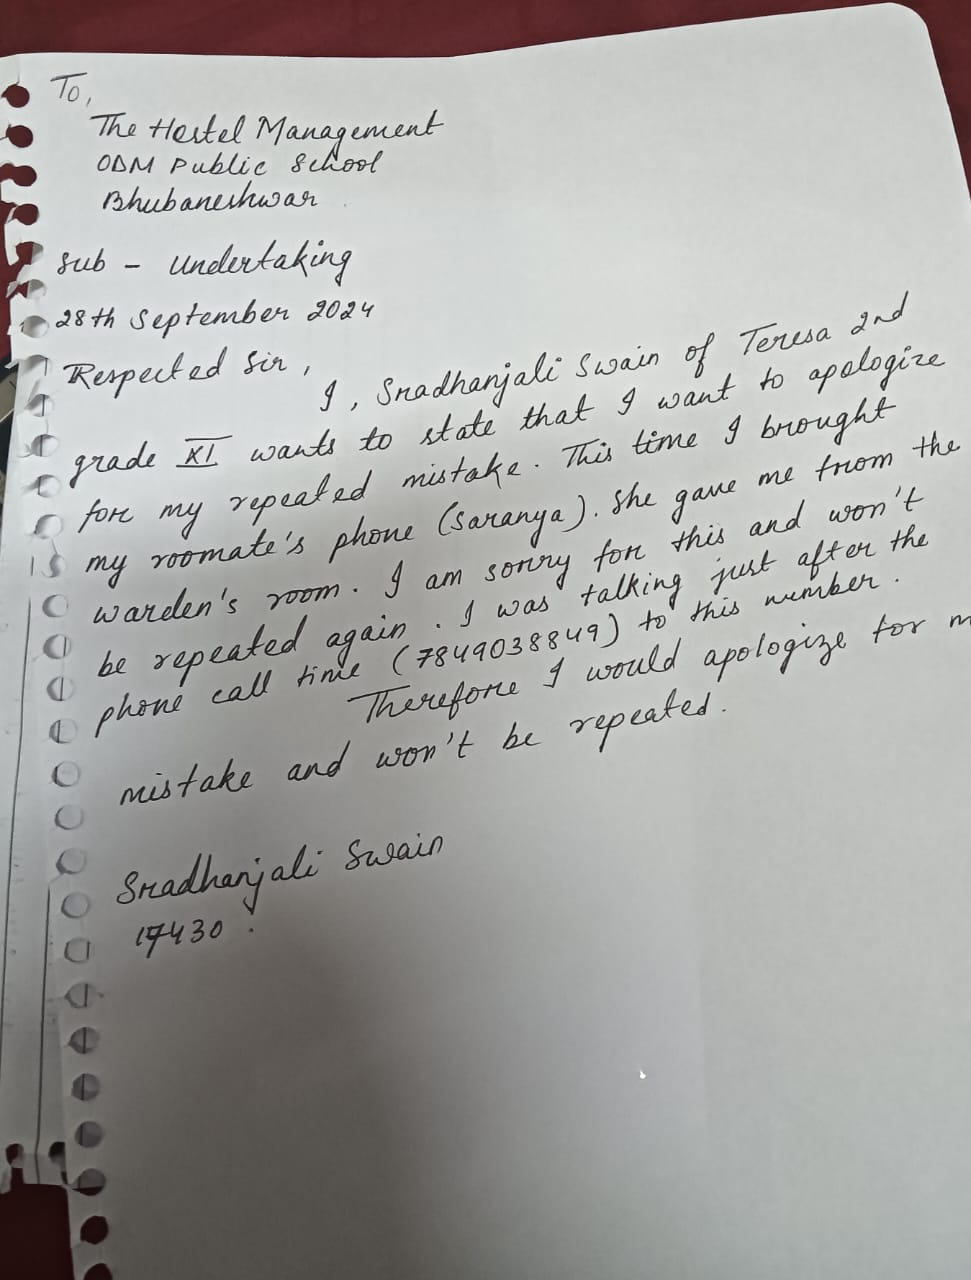 To,
The Hostel Management
ODM Public School
Bhubaneshwar
Sub - Undertaking
28th September 2024
Respected Sir,
I, Sradhanjali Swain of Teresa 2nd
grade XI wants to state that I want to apologize
for my repeated mistake. This time I brought
my roomate's phone (Saranya). She gave me from the
warden's room. I am sorry for this and won't
be repeated again. I was talking just after the
phone call time (7849038849) to this number.
Therefore I would apologize for m
mistake and won't be repeated.
Sradhanjali Swain
17430.